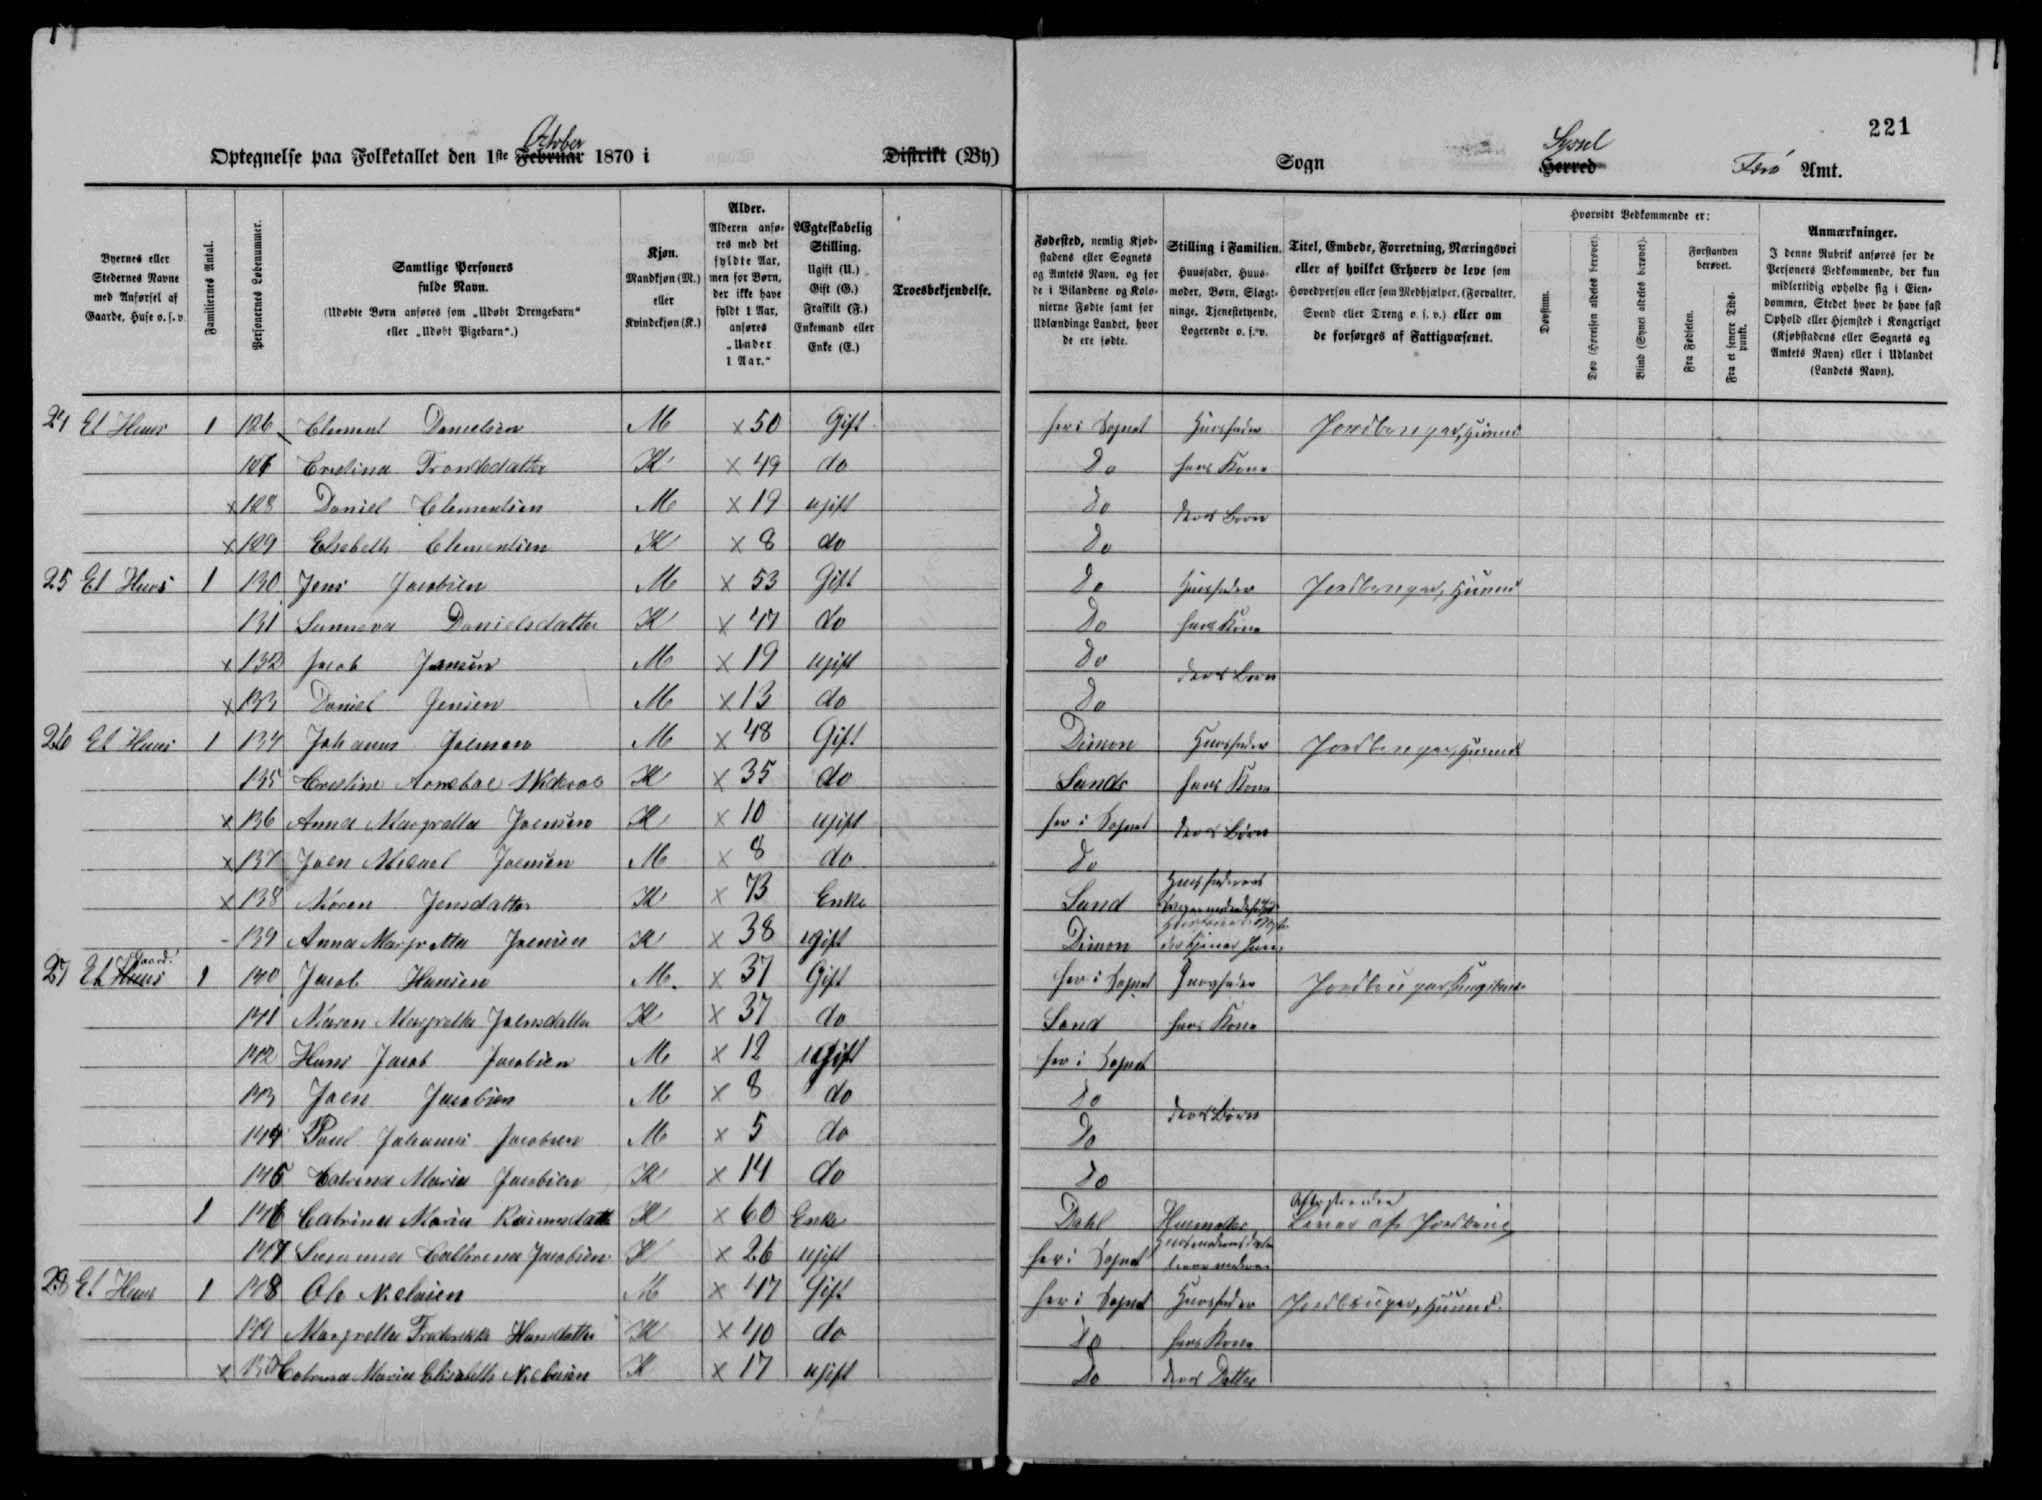 221
October
Syssel
Optegnelse paa Folketallet den 1ste Februar 1870 i Distrikt (By)
Sogn Herred Færø Amt.
Byernes eller Stedernes Navne med Anførsel af Gaarde, Huse o. s. v.
Familiernes Antal.
Personernes Løbenummer.
Samtlige Personers fulde Navn.
(Udøbte Børn anføres som „Udøbt Drengebarn“ eller „Udøbt Pigebarn“.)
Kjøn.
Mandkjøn (M.) eller Kvindekjøn (K.)
Alder.
Alderen anføres med det fyldte Aar, men for Børn, der ikke have fyldt 1 Aar, anføres „Under 1 Aar.“
Ægteskabelig Stilling.
Ugift (U.)
Gift (G.)
Fraskilt (F.)
Enkemand eller Enke (E.)
Troesbekjendelse.
Fødested, nemlig Kjøbstadens eller Sognets og Amtets Navn, og for de i Bilandene og Kolonierne Fødte samt for Udlændinge Landet, hvor de ere fødte.
Stilling i Familien.
Huusfader, Huusmoder, Børn, Slægtninge, Tjenestetyende, Logerende o. s. v.
Titel, Embede, Forretning, Næringsvei eller af hvilket Erhverv de leve som Hovedperson eller som Medhjælper, (Forvalter, Svend eller Dreng o. s. v.) eller om de forsørges af Fattigvæsenet.
Hvorvidt Vedkommende er:
Døvstum.
Døv (Hørelsen aldeles berøvet).
Blind (Synet aldeles berøvet).
Forstanden berøvet.
Fra Fødselen.
Fra et senere Tidspunkt.
Anmærkninger.
I denne Rubrik anføres for de Personers Vedkommende, der kun midlertidig opholde sig i Eiendommen, Stedet hvor de have fast Ophold eller Hjemsted i Kongeriget (Kjøbstadens eller Sognets og Amtets Navn) eller i Udlandet (Landets Navn).
24 Et Huus 1 126 Clement Danielsen M x 50 Gift her i Sognet Huusfader Jordbruger,
127 Cristina Trondsdatter K x 49 do Do hans Kone
x 128 Daniel Clementsen M x 19 ugift Do deres Børn
x 129 Elsebeth Clementsen K x 8 do Do
25 Et Huus 1 130 Jens Jacobsen M x 53 Gift Do Huusfader Jordbruger,
131 Sunneva Danielsdatter K x 47 do Do hans Kone
x 132 Jacob Jensen M x 19 ugift Do deres Børn
x 133 Daniel Jensen M x 13 do Do
26 Et Huus 1 134 Johannes Joensen M x 48 Gift Dimon Huusfader Jordbruger,
135 Cristine K x 35 do Sands hans Kone
x 136 Anna Margretha Joensen K x 10 ugift her i Sognet deres Børn
x 137 Joen Micael Joensen M x 8 do Do
x 138 Maren Jensdatter K x 73 Enke Sand Huusfaderens
- 139 Anna Margretha Joensen K x 38 ugift Dimon
27 Et Huus Gaard 1 140 Jacob Hansen M. x 37 Gift her i Sognet Huusfader Jordbruger
141 Maren Margretha Joensdatter K x 37 do Sand hans Kone
142 Hans Jacob Jacobsen M x 12 ugift her i Sognet
143 Joen Jacobsen M x 8 do Do deres Børn
144 Poul Johannes Jacobsen M x 5 do Do
145 Catrina Maria Jacobsen K x 14 do Do
1 146 Catrina Maria K x 60 Enke Dahl Husmoder Lever af Jordbrug
147 Susanna Cathrina Jacobsen K x 26 ugift her i Sognet
28 Et Huus 1 148 Ole Nielsen M x 47 Gift her i Sognet Huusfader Jordbruger,
149 Margretha Frederikke Hansdatter K x 40 do Do hans Kone
x 150 Catrina Maria Elisabeth Nielsen K x 17 ugift Do deres Datter